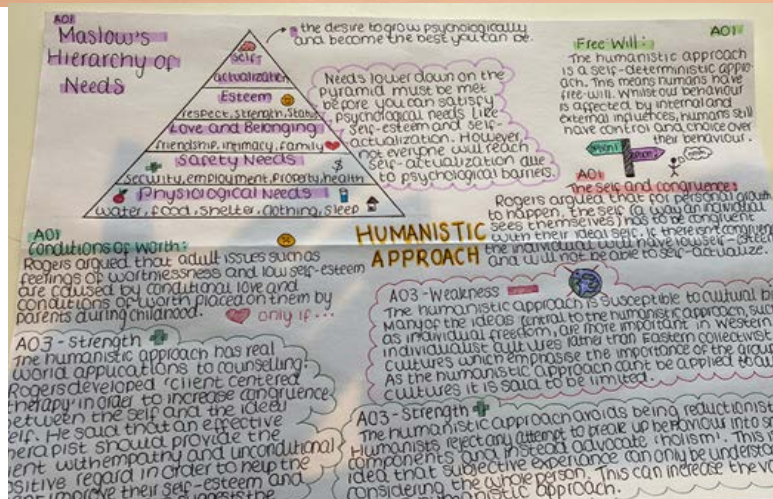 AO1
Maslow's
Hierarchy of
Needs
the desire to grow psychologically
and become the best you can be.
self
actualization
Esteem
respect, strength, status
Love and Belonging
friendship, intimacy, family
Safety Needs
security, employment, property, health
Physiological Needs
water, food, shelter, clothing, sleep
Needs lower down on the
pyramid must be met
before you can satisfy
psychological needs like
self-esteem and self-
actualization. However,
not everyone will reach
self-actualization due
to psychological barriers.
AO1
Free Will:
The humanistic approach
is a self-deterministic appro-
ach. This means humans have
free-will. Whilst our behaviour
is affected by internal and
external influences, humans still
have control and choice over
their behaviour.
AO1
The self and congruence:
Rogers argued that for personal growth
to happen, the self (a way an individual
sees themselves) has to be congruent
with their ideal self. If there isn't congruen
the individual will have low self-esteem
and will not be able to self-actualize.
HUMANISTIC
APPROACH
AO1
Conditions of worth:
Rogers argued that adult issues such as
feelings of worthlessness and low self-esteem
are caused by conditional love and
conditions of worth placed on them by
parents during childhood.
only if...
AO3 - Strength
The humanistic approach has real
world applications to counselling.
Rogers developed 'client centered
therapy' in order to increase congruence
between the self and the ideal
elf. He said that an effective
herapist should provide the
ent with empathy and unconditional
sitive regard in order to help the
ent improve their self-esteem and
suggests the
AO3 - Weakness
The humanistic approach is susceptible to cultural bi
Many of the ideas central to the humanistic approach, suc
as individual freedom, are more important in Western
individualist cultures rather than Eastern collectivist
cultures which emphasise the importance of the group
As the humanistic approach cant be applied to all
cultures it is said to be limited.
AO3 - Strength
The humanistic approach avoids being reductionist
Humanists reject any attempt to break up behaviour into s
components and instead advocate 'holism'. This i
idea that subjective experience can only be understo
considering the whole person. This can increase the v
humanistic approach.